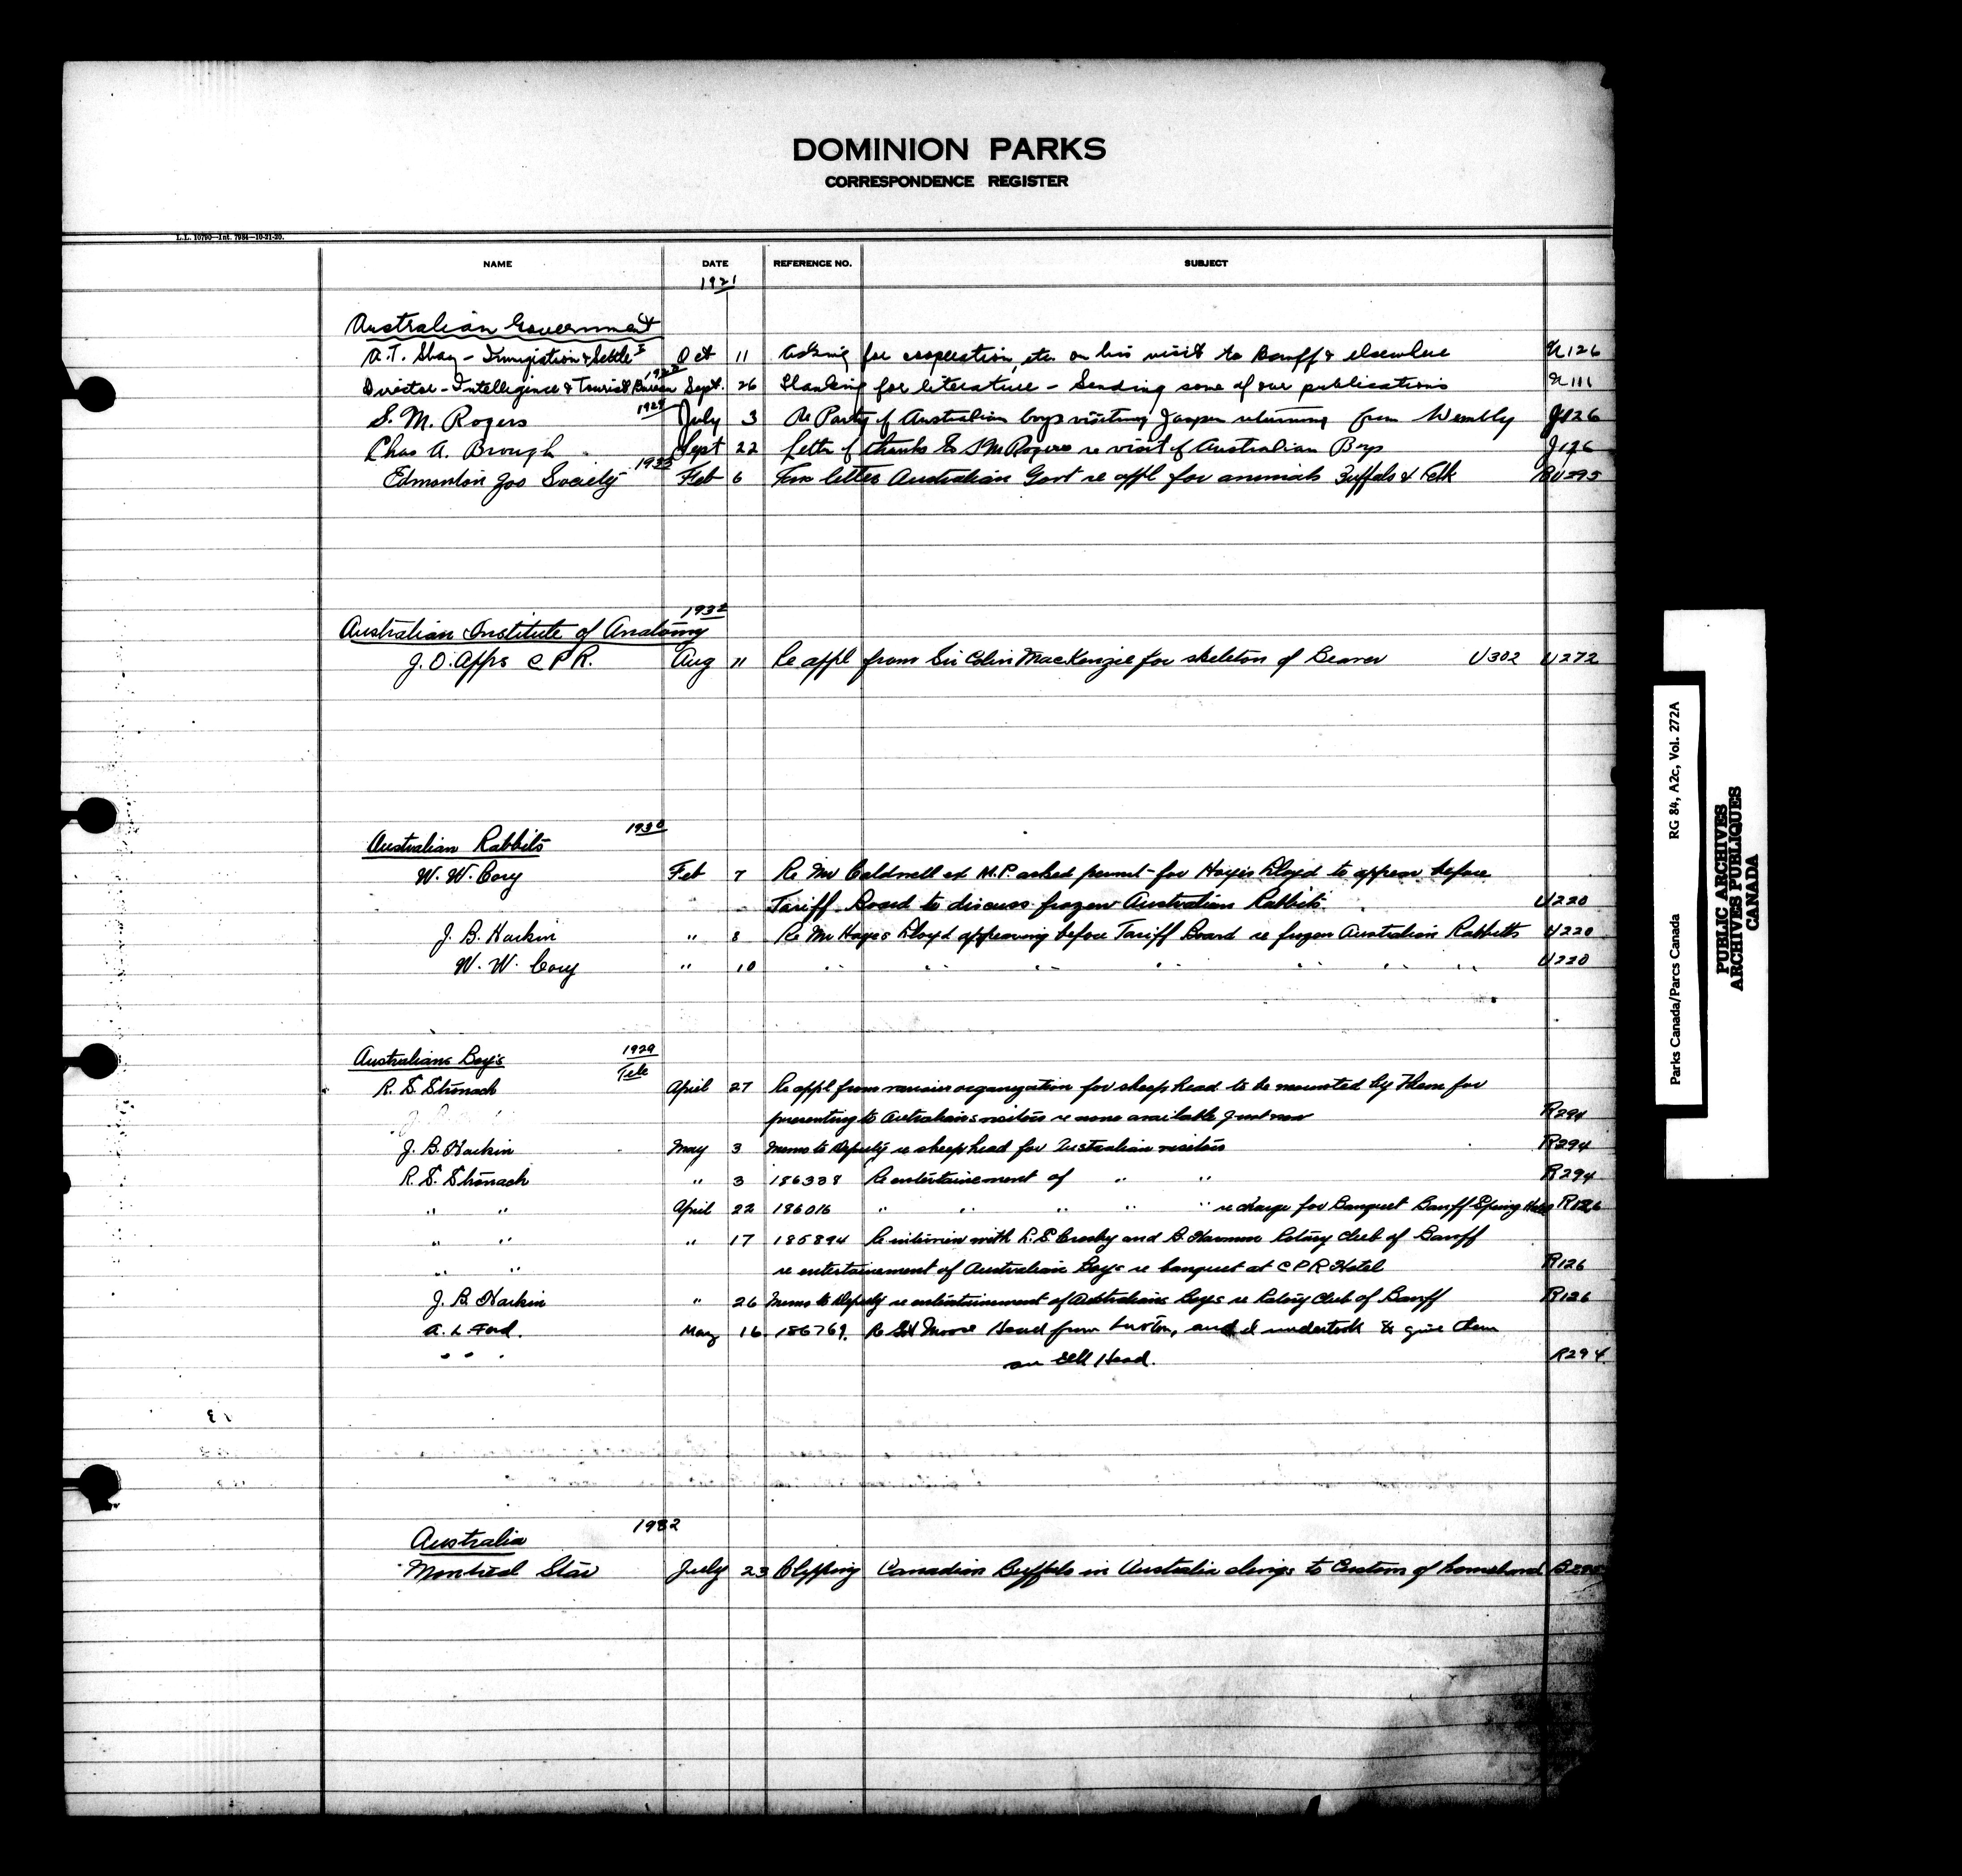 DOMINION PARKS
CORRESPONDENCE REGISTER
L.L. 10790—Int. 7984—10-21-20.
NAME DATE REFERENCE NO. SUBJECT
1921
Australian Government
A.T. Shay - Immigration & Settle Oct 11 Asking for cooperation, etc. on his visit to Banff & elsewhere 126
Director - Intelligence & Tourist Bureau Sept. 26 Thanking for literature - Sending some of our publications 111
1924
S. M. Rogers July 3 Re Party of Australian boys visiting Jasper returning from Wembly J126
Chas A. Brough Sept 22 Letter of thanks to S M Rogers re visit of Australian Boys J126
Edmonton Zoo Society Feb 6 letter Australian Govt re appl for animals Buffalo & Elk BU295
1932
Australian Institute of Anatomy
J. O. Apps C P R. Aug 11 Re appl from Sir Colin MacKenzie for skeleton of Beaver U302 U272
1930
Australian Rabbits
W. W. Cory Feb 7 Re Mr Caldwell ex M.P. asked permit for Hoyes Lloyd to appear before
Tariff Board to discuss frozen Australian Rabbits. U220
J. B. Harkin " 8 Re Mr Hoyes Lloyd appearing before Tariff Board re frozen Australian Rabbits U220
W. W. Cory " 10 " " " " " " " U220
1929
Australians Boy's
Tele
R. S. Stronach April 27 Re appl from organization for sheep head to be mounted by them for
presenting to Australians visitors re none available just now R294
J. B. Harkin May 3 Memo to Deputy re sheep head for Australian visitors R294
R. S. Stronach " 3 186338 Re entertainement of " " R294
" " April 22 186016 " " " " " re charge for Banquet Banff Spring Hotel R126
" " " 17 185894 Re interview with L. S Crosby and B. Harmon Rotary Club of Banff
" " re entertainement of Australian Boys re banquet at C P R Hotel R126
J. B. Harkin " 26 Memo to Deputy re entertainement of Australians Boys re Rotary Club of Banff R126
A. L. Ford. May 16 186769. Re Moose Head from Luxton, and undertook to give them
" " " an Elk Head. R294
1932
Australia
Montreal Star July 23 Clipping Canadian Buffalo in Australia clings to Custom of homeland
Parks Canada/Parcs Canada RG 84, A2c, Vol. 272A
PUBLIC ARCHIVES
ARCHIVES PUBLIQUES
CANADA